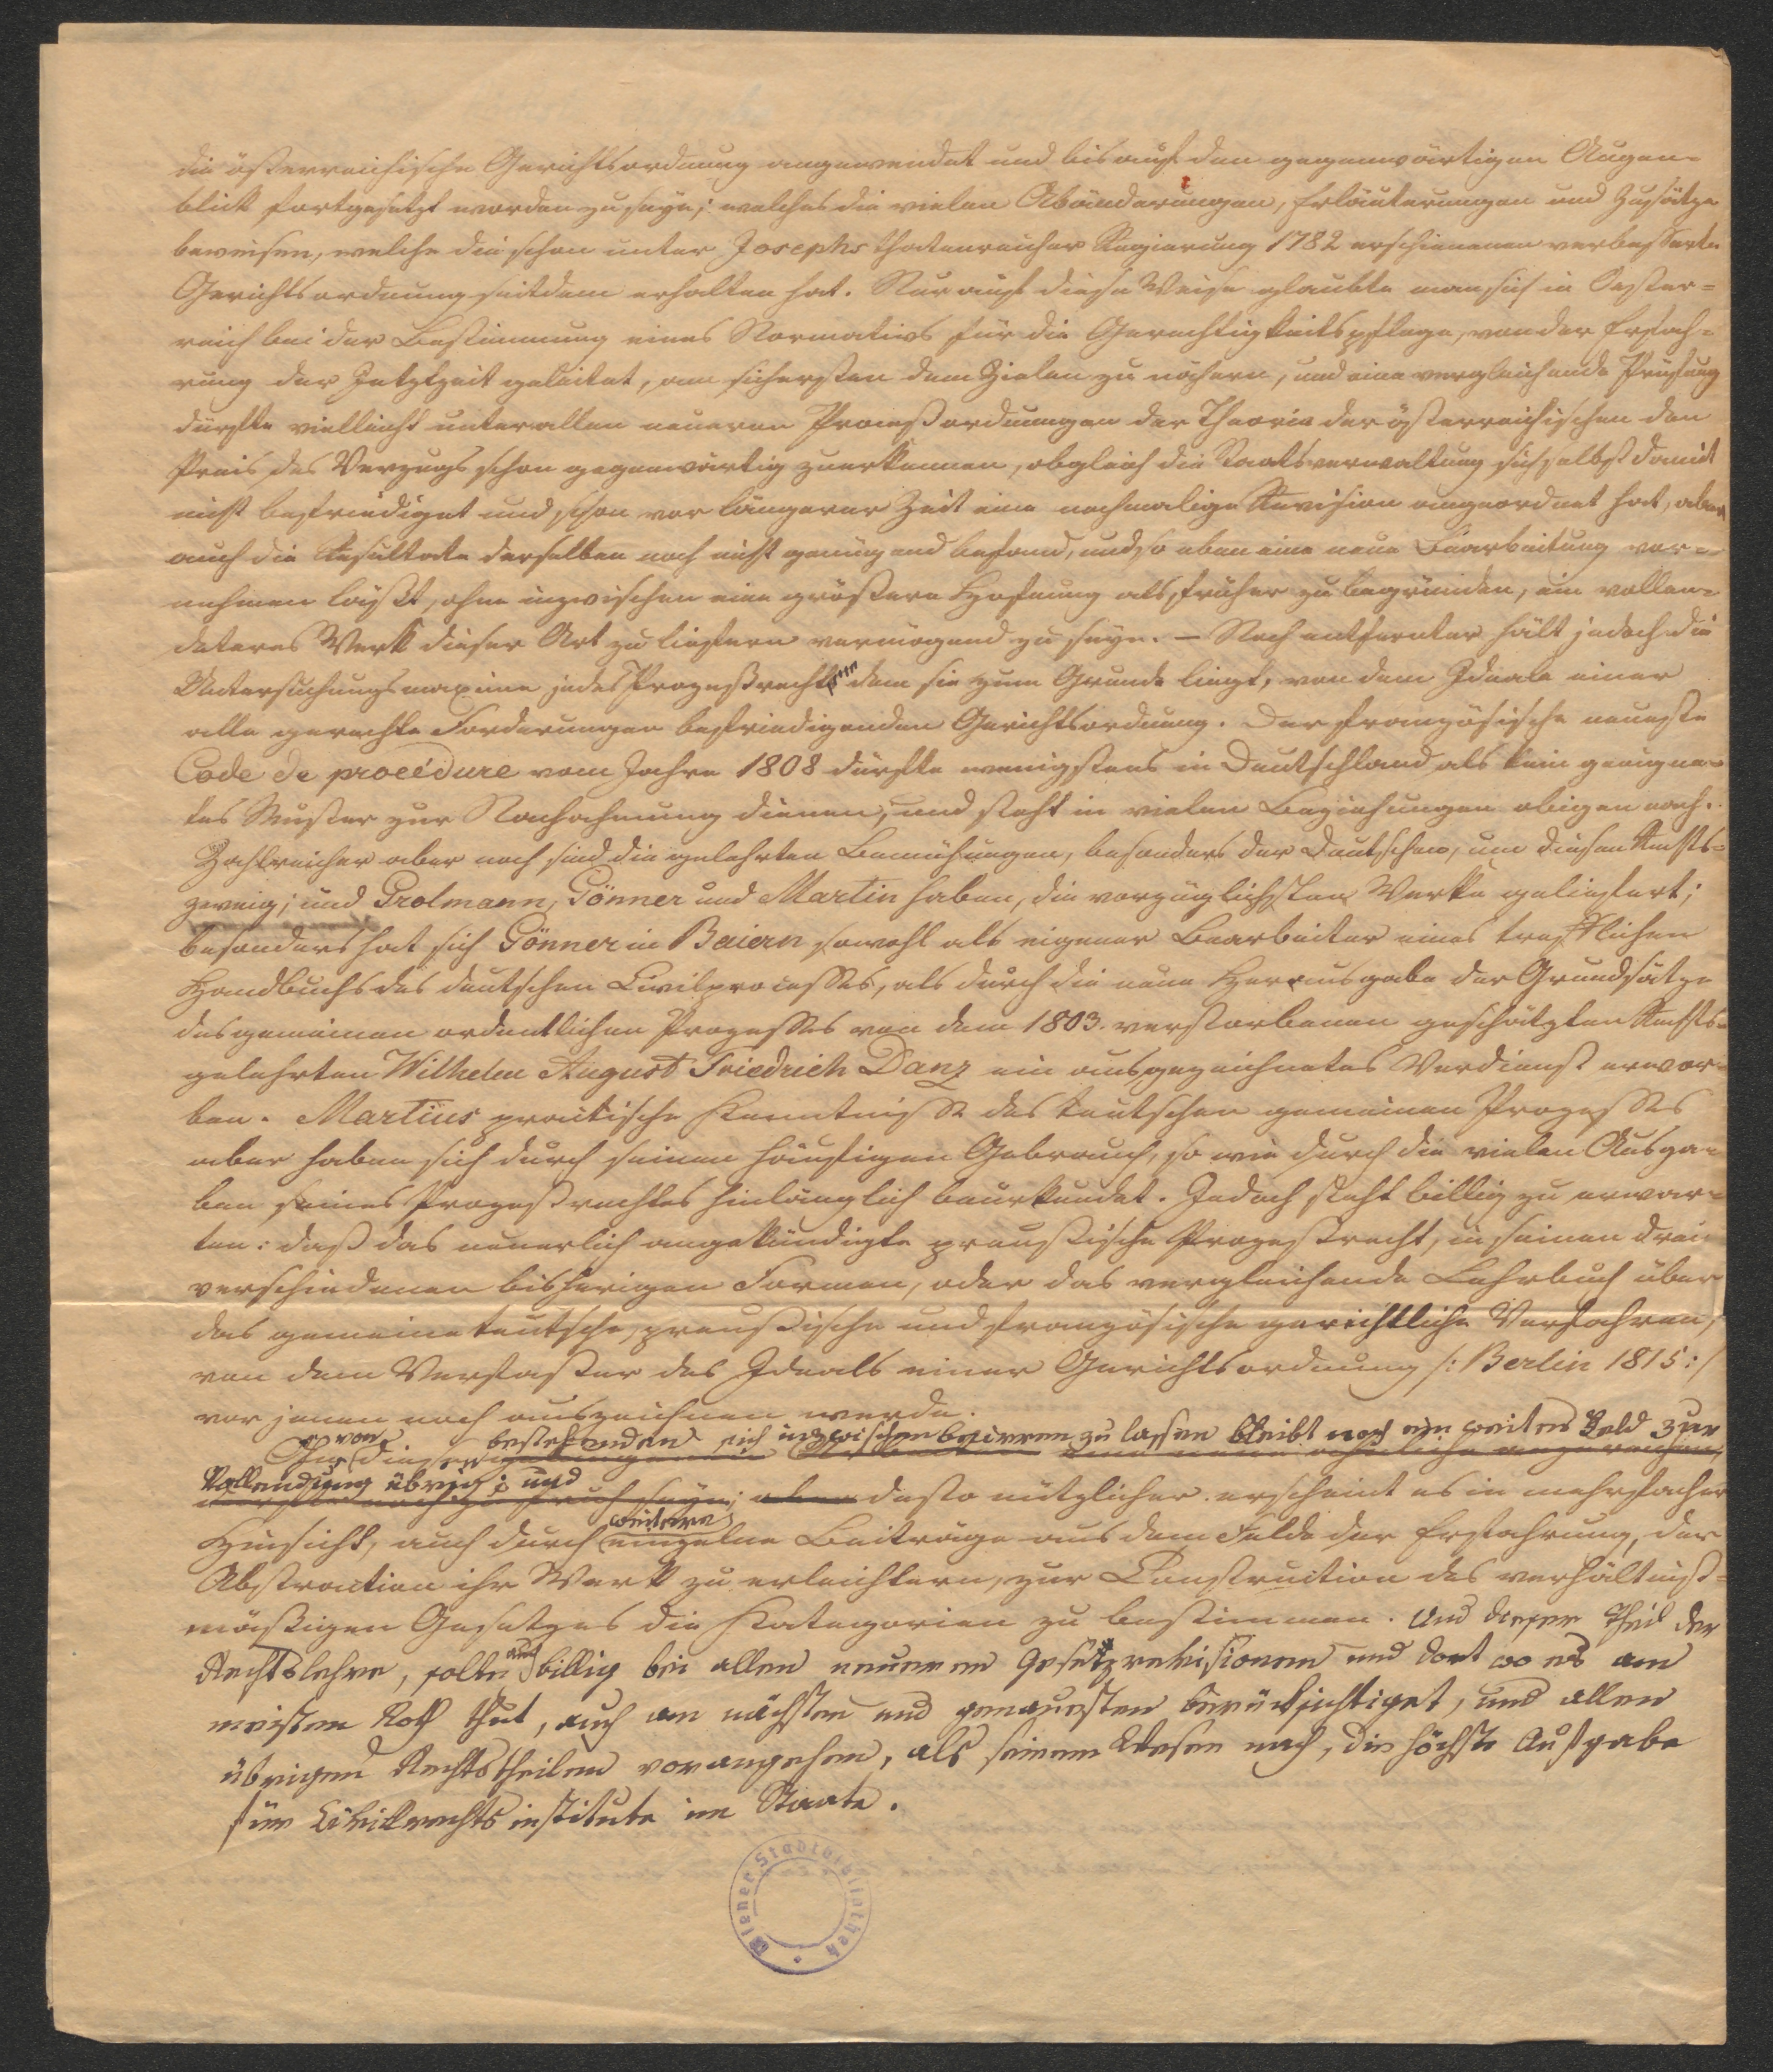 die österreichische Gerichtsordnung angewendet und bis auf den gegenwärtigen Augen-
blick fortgesetzt worden zu seyn; welches die vielen Abänderungen, Erläuterungen und Zusätze
beweisen, welche die schon unter Josephs thatenreicher Regierung 1782 erschienenen verbesserte
Gerichtsordnung seitdem erhalten hat. Nur auf diese Weise glaubte man sich in Oester-
reich bei der Bestimmung eines Normativs für die Gerechtigkeitspflege, von der Erfah-
rung der Jetztzeit geleitet, am sichersten dem Zielen zu nähern, und eine vergleichende Prüfung
dürfte vielleicht unter allen neueren Proceßordnungen der Theorie der österreichischen den
Preis des Vorzugs schon gegenwärtig zuerkennen, obgleich die Staatsverwaltung sich selbst damit
nicht befriediget und schon vor längerer Zeit eine nochmalige Revision angeordnet hat, aber
auch die Resultate derselben noch nicht genügend befand, und so eben eine neue Bearbeitung vor-
nehmen läßt, ohne inzwischen eine größere Hofnung als früher zu begründen, ein vollen-
deteres Werk dieser Art zu liefern vermögend zu seyn. — Noch entfernter hält jedoch die
Untersuchungsmaxime jedes Prozeßrecht dem sie zum Grunde liegt, von dem Ideale einer
alle gerechte Forderungen befriedigenden Gerichtsordnung. Der französische neueste
Code de procédure vom Jahre 1808 dürfte wenigstens in Deutschland als kein geeigne-
tes Muster zur Nachahmung dienen, und steht in vielen Beziehungen obigen nach.
Zahlreicher aber noch sind die gelehrten Bemühungen, besonders der Deutschen, um diesen Rechts-
zweig; und Grolmann, Gönner und Martin haben, die vorzüglichsten Werke geliefert;
besonders hat sich Gönner in Baiern sowohl als eigener Bearbeiter eines trefflichen
Handbuchs des deutschen Civilprocesses, als durch die neue Herausgabe der Grundsätze
des gemeinen ordentlichen Prozesses von dem 1803. verstorbenen geschätzten Rechts-
gelehrten Wilhelm August Friedrich Danz ein ausgezeichnetes Verdienst erwor-
ben. Martins practische Kenntnisse des teutschen gemeinen Prozesses
aber haben sich durch seinen häufigen Gebrauch, so wie durch die vielen Ausga-
ben seines Prozeßrechtes hinlänglich beurkundet. Jedoch steht billig zu erwar-
ten: daß das neuerlich angekündigte preußische Prozeßrecht, in seinen drei
verschiedenen bisherigen Formen, oder das vergleichende Lehrbuch über
das gemeine teutsche, preußische und französische gerichtliche Verfahren,
von dem Verfasser des Ideals einer Gerichtsordnung /: Berlin 1815 :/
vor jenen noch auszeichnen werde.
von bestehenden sich inzwischen beirren zu lassen bleibt noch ein weites Feld zur
Vollendung übrig; und
desto nützlicher erscheint es in mehrfacher
weitere
Hinsicht, auch durch einzelne Beiträge aus dem Felde der Erfahrung, der
Abstraction ihr Werk zu erleichtern, zur Construction des verhältniß-
mäßigen Gesetzes die Kategorien zu bestimmen. Und dieser Theil der
Rechtslehre, sollte auch billig bei allen neueren Gesetzrevisionen und dort wo es am
meisten Noth thut, auch am nächsten und genauesten berücksichtiget, und allen
übrigen Rechtstheilen vorangehen, als seinem Wesen nach, die höchste Aufgabe
für Civilrechtsinstitute im Staate.
Wiener Stadtbibliothek